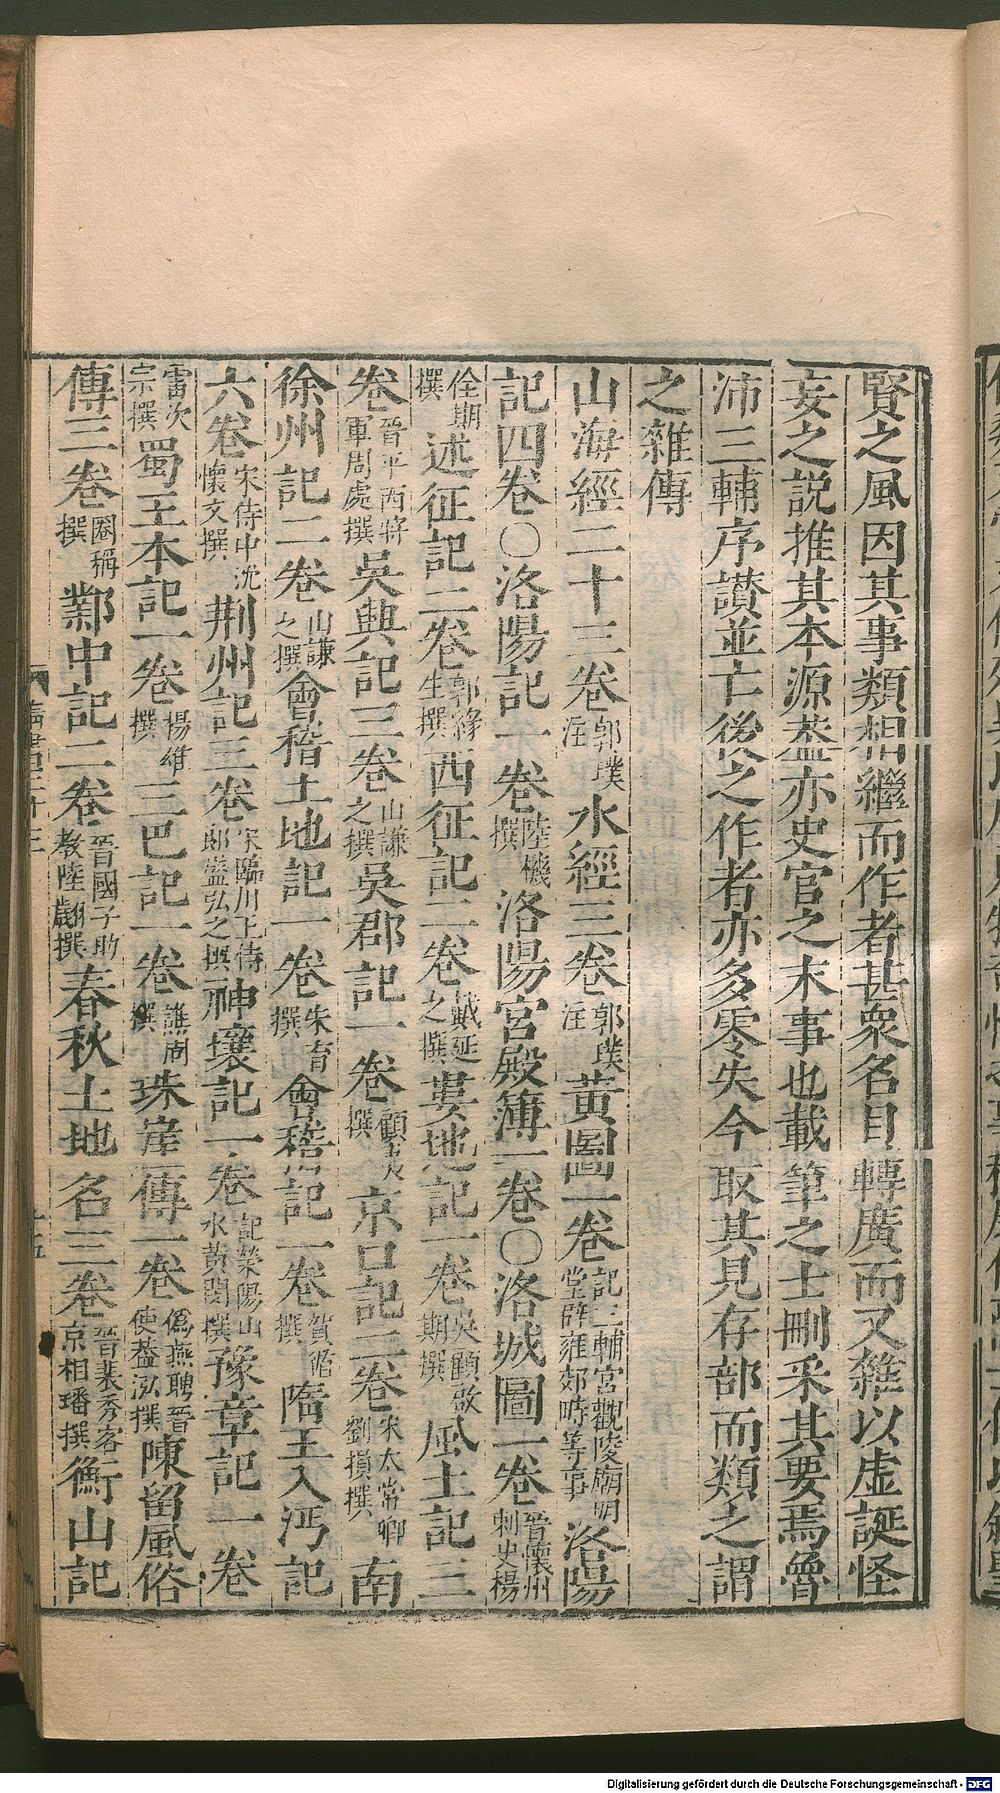 賢之風因其事類相繼而作者甚衆名目轉廣而又雜以虛誕怪
妄之説推其本源葢亦史官之末事也載筆之士刪采其要焉魯
沛三輔序讃並亡後之作者亦多零失今取其見存部而類之謂
之雜傳
山海經二十三卷郭璞注水經三卷郭璞注黃圖一卷記三輔宮觀陵廟明堂辟雍郊時等事洛陽
記四卷〇洛陽記一卷陸機撰洛陽宮殿簿一卷〇洛城圖一卷晉懷州刺史楊
佺期撰述征記二卷郭緣生撰西征記二卷戴延之撰婁地記一卷吳顧啟期撰風土記三
卷晉平西將軍周處撰吳興記三卷山謙之撰吳郡記一卷顧夷撰京口記二卷宋太常卿劉損撰南
徐州記二卷山謙之撰會稽土地記一卷朱育撰會稽記一卷賀循撰隋王入沔記
六卷宋侍中沈懷文撰荆州記三卷宋臨川王侍郎盛弘之撰神壤記一卷記滎陽山水黃閔撰豫章記一卷
雷次宗撰蜀王本記一卷楊雄撰三巴記一卷譙周撰珠崖傳一卷僞燕聘晉使葢泓撰陳留風俗
傳三卷圈稱撰鄴中記二卷晉國子助教陸翽撰春秋土地名三卷晉裴秀客京相璠撰衡山記
Digitalisierung gefördert durch die Deutsche Forschungsgemeinschaft - DFG